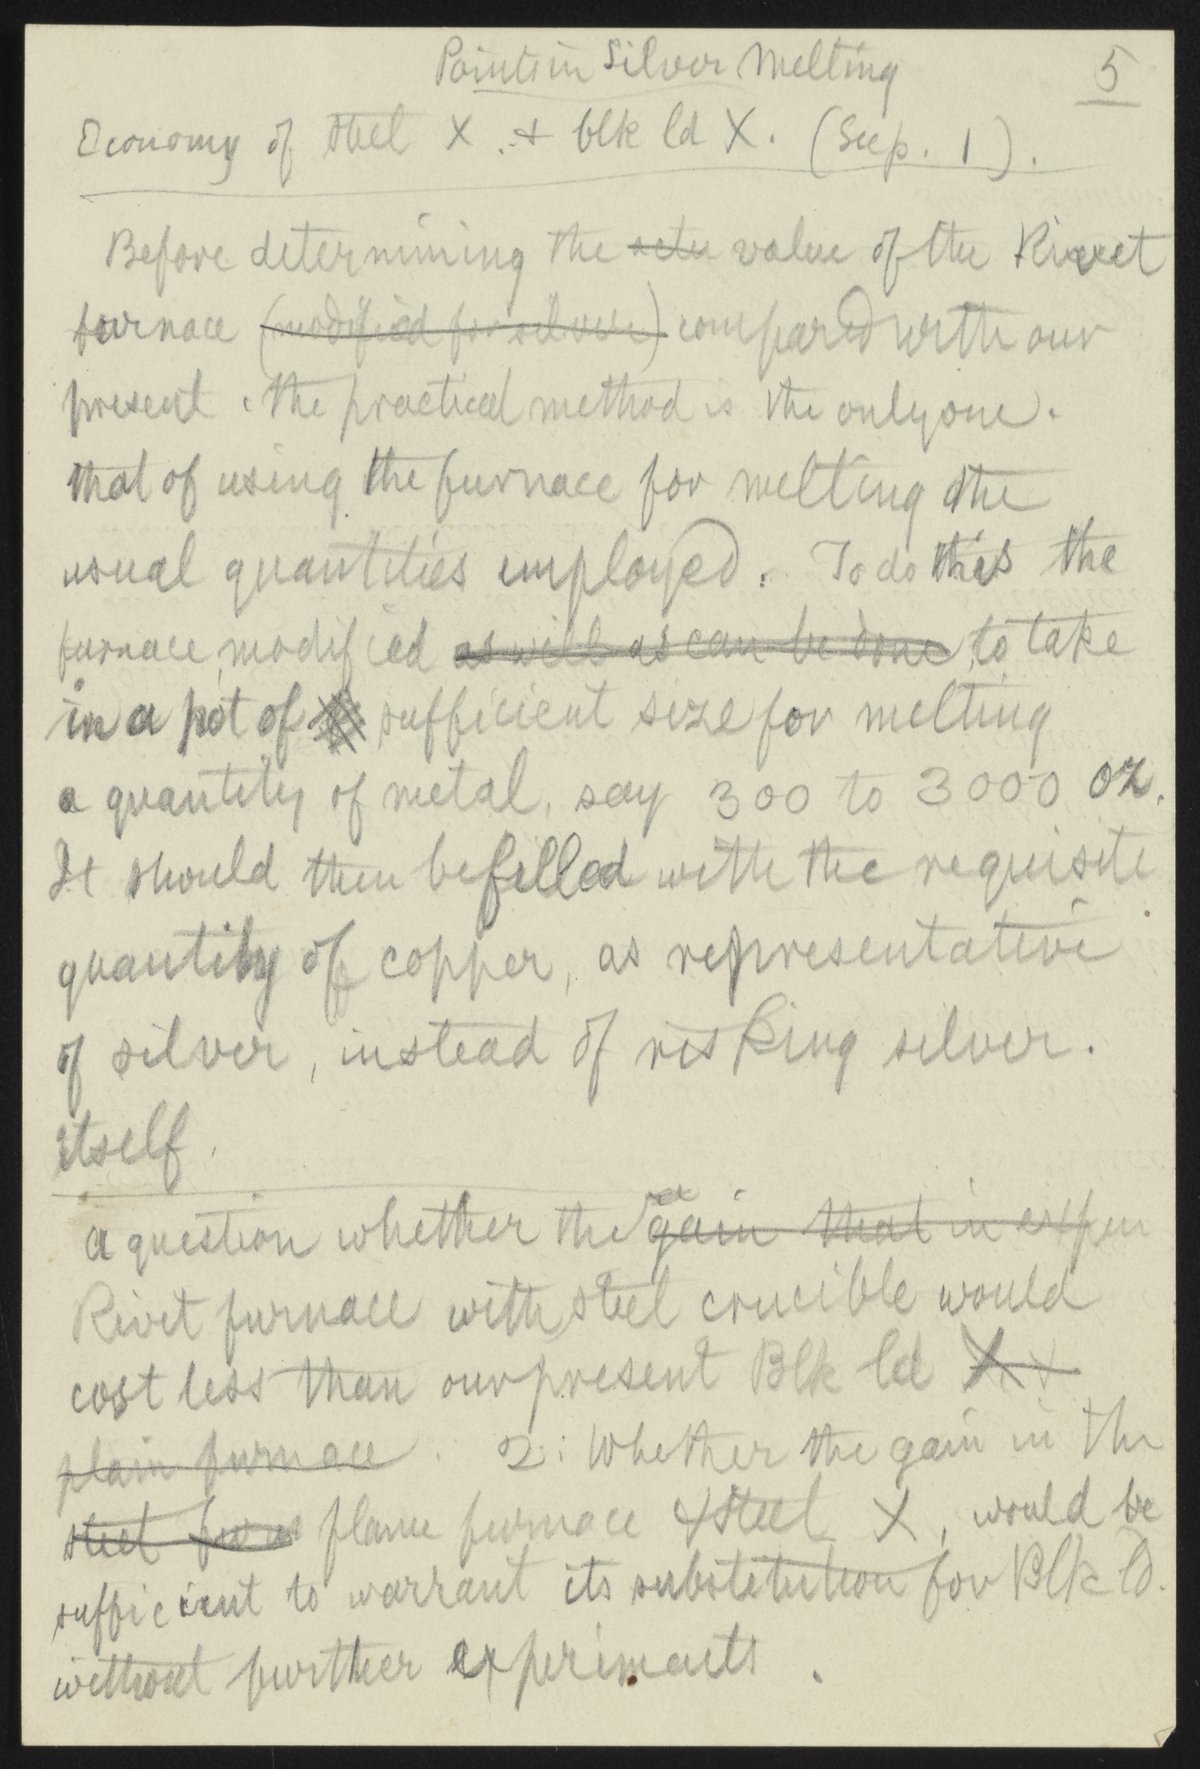 Points in Silver Melting 5
Economy of steel X . & blk ld X. (See p. 1).
Before determining the value of the Rivet
furnace (modified for silver) compared with our
present . the practical method is the only one.
that of using the furnace for melting the
usual quantities employed. To do this the
furnace modified as well as can be done to take
in a pot of sufficient size for melting
a quantity of metal, say 300 to 3000 oz.
It should then be filled with the requisite
quantity of copper, as representative
of silver, instead of risking silver.
itself.
a question whether the gain that in expen
Rivet furnace with steel crucible would
cost less than our present Blk ld X
plain furnace. 2: Whether the gain in the
steel furna plane furnace & steel X, would be
sufficient to warrant its substitution for Blk ld.
without further experiments.